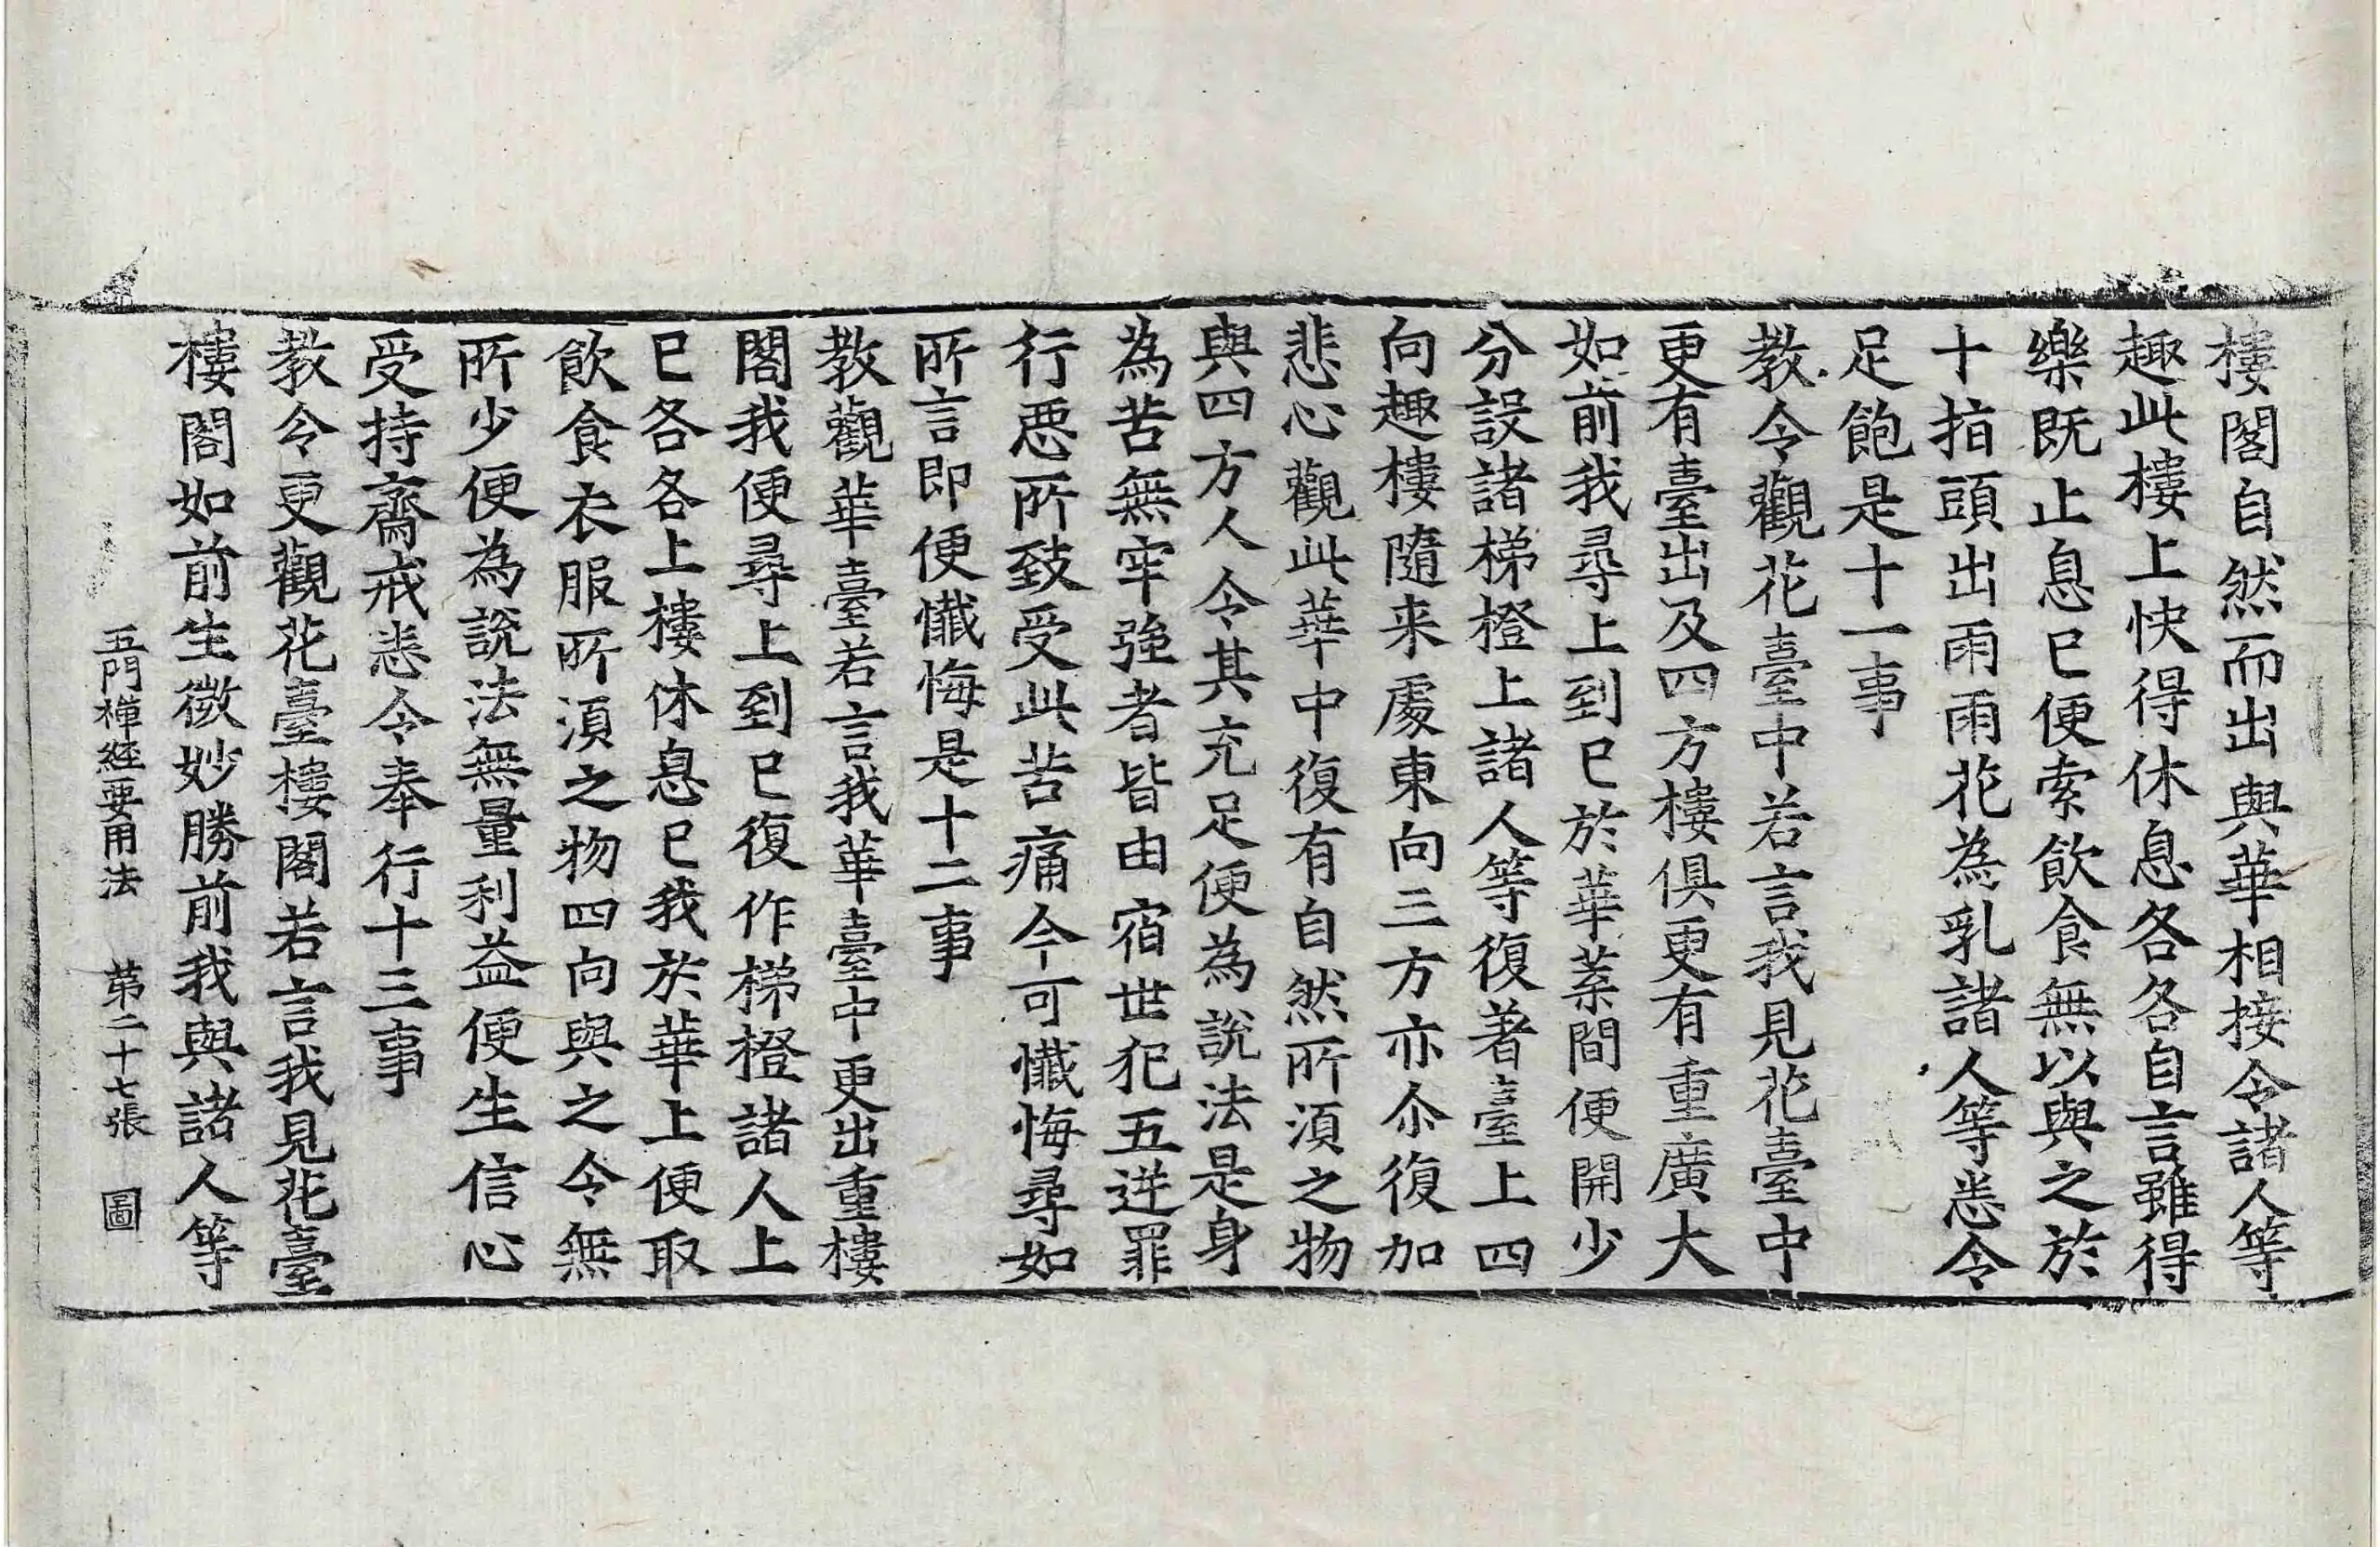 樓閣自然而出與華相接令諸人等
趣此樓上快得休息各各自言雖得
樂既止息已便索飲食無以與之於
十指頭出雨雨花為乳諸人等悉令
足飽是十一事
教令觀花臺中若言我見花臺中
更有臺出及四方樓俱更有重廣大
如前我尋上到已於華葉間便開少
分設諸梯橙上諸人等復著臺上四
向趣樓隨来處東向三方亦尒復加
悲心觀此華中復有自然所須之物
與四方人令其充足便為說法是身
為苦無牢強者皆由宿世犯五逆罪
行惡所致受此苦痛今可懺悔尋如
所言即便懺悔是十二事
教觀華臺若言我華臺中更出重樓
閣我便尋上到已復作梯橙諸人上
已各各上樓休息已我於華上便取
飲食衣服所須之物四向與之令無
所少便為說法無量利益便生信心
受持齋戒悉令奉行十三事
教令更觀花臺樓閣若言我見花臺
樓閣如前生微妙勝前我與諸人等
五門禪経要用法 第二十七張 圖